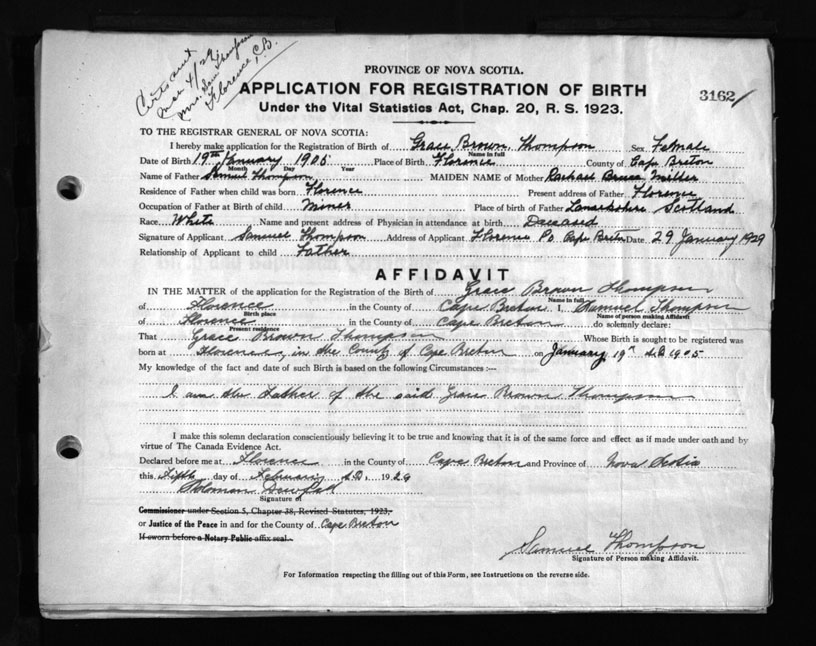 Cert sent
Mar 4/29
Mrs. Sam Thompson
Florence, C.B.
PROVINCE OF NOVA SCOTIA.
APPLICATION FOR REGISTRATION OF BIRTH
31621
Under the Vital Statistics Act, Chap. 20, R. S. 1923.
TO THE REGISTRAR GENERAL OF NOVA SCOTIA:
I hereby make application for the Registration of Birth of Grace Brown Thompson Sex Female
Name in full
Date of Birth 19th January 1905 Place of Birth Florence County of Cape Breton
Month Day Year
Name of Father Samuel Thompson MAIDEN NAME of Mother Rachael Miller
Residence of Father when child was born Florence Present address of Father Florence
Occupation of Father at Birth of child Miner Place of birth of Father Lanarkshire Scotland
Race White Name and present address of Physician in attendance at birth Deceased
Signature of Applicant Samuel Thompson Address of Applicant Florence PO Cape Breton Date 29 January 1929
Relationship of Applicant to child Father
AFFIDAVIT
IN THE MATTER of the application for the Registration of the Birth of Grace Brown Thompson
Name in full
of Florence in the County of Cape Breton I, Samuel Thompson
Birth place Name of person making Affidavit
of Florence in the County of Cape Breton do solemnly declare:
Present residence
That Grace Brown Thompson Whose Birth is sought to be registered was
born at Florence, in the County of Cape Breton on January 19th A.D. 1905
My knowledge of the fact and date of such Birth is based on the following Circumstances :—
I am the Father of the said Grace Brown Thompson
I make this solemn declaration conscientiously believing it to be true and knowing that it is of the same force and effect as if made under oath and by
virtue of The Canada Evidence Act.
Declared before me at Florence in the County of Cape Breton and Province of Nova Scotia
this Fifth day of February A.D. 1929
Signature of
Commissioner under Section 5, Chapter 38, Revised Statutes, 1923,
or Justice of the Peace in and for the County of Cape Breton
If sworn before a Notary Public affix seal.
Samuel Thompson
Signature of Person making Affidavit.
For Information respecting the filling out of this Form, see Instructions on the reverse side.